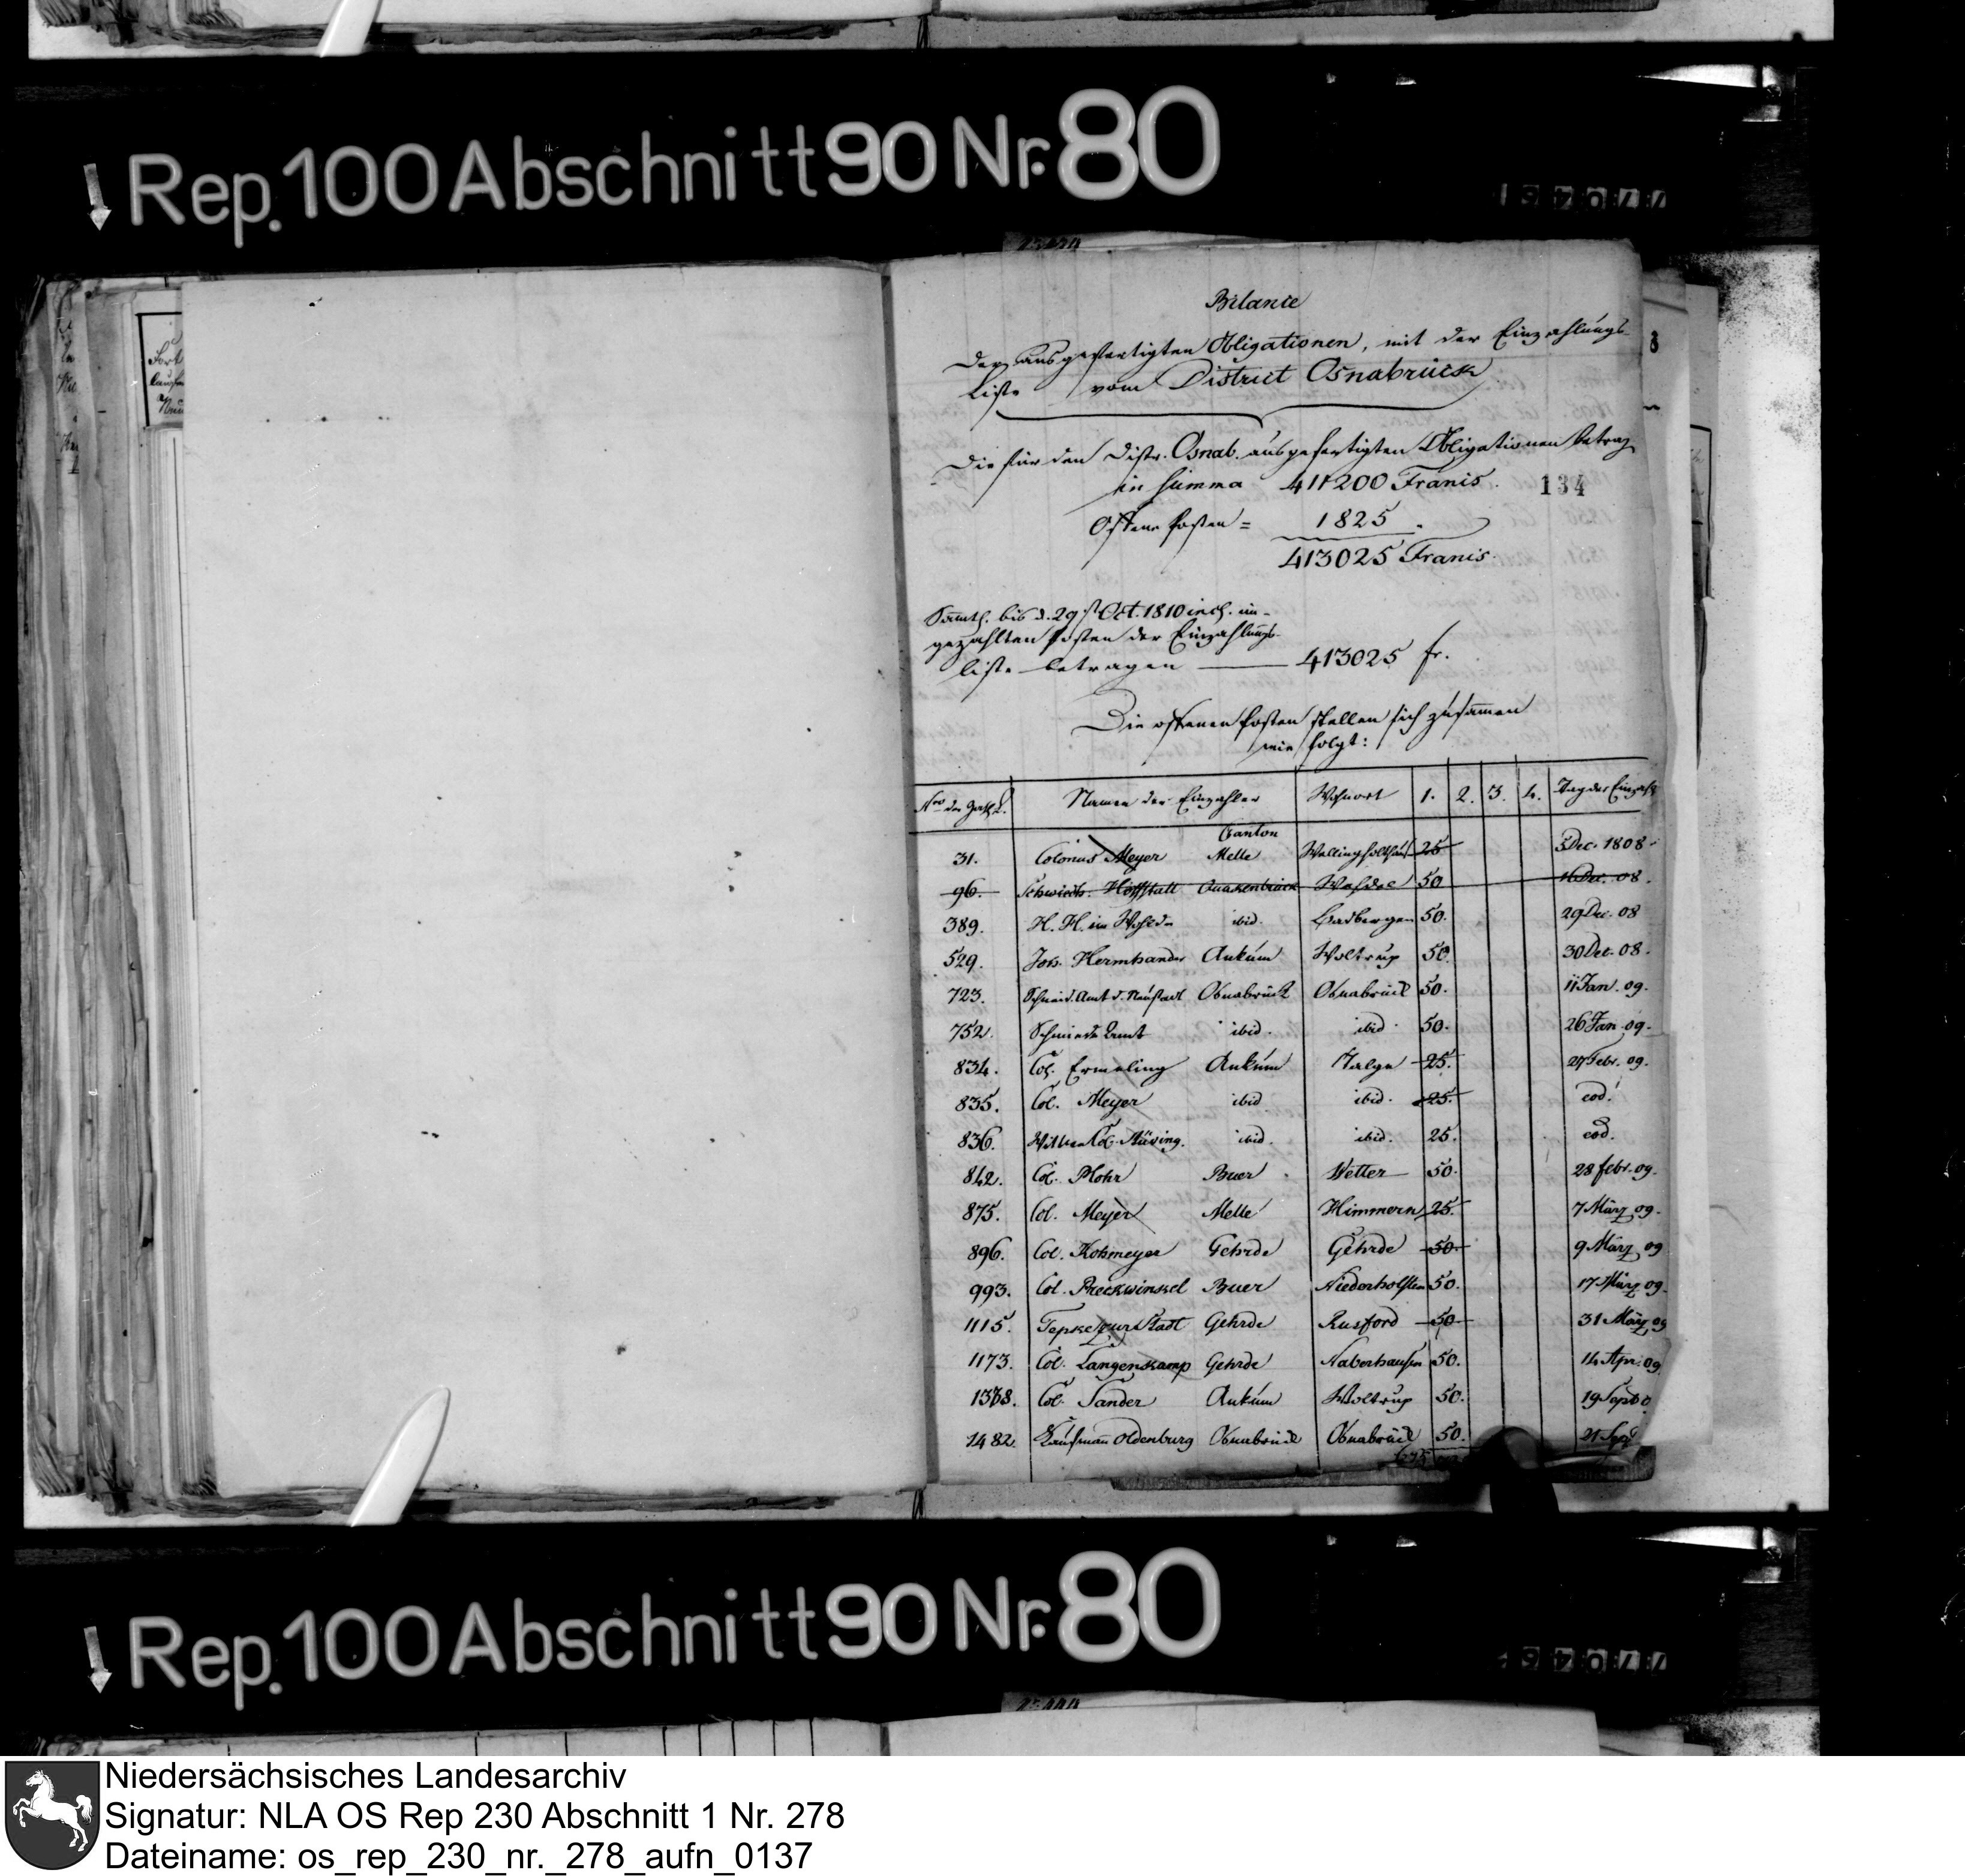 Rep. 100 Abschnitt 90 Nr. 80
Bilance
der ausgefertigten Obligationen, mit der Einzahlungs-
Liste vom District Osnabrück
Die für den Distr. Osnab. ausgefertigten Obligationen betrag.
in Summa 411200 Francs.
134
Offene Posten = 1825.
413025 Francs.
Sämtl. bis d. 29st Oct. 1810 incl. ein-
gezahlten Posten der Einzahlungs-
liste betragen — 413025 fr.
Die offenen Posten stellen sich zusammen
wie folgt:
Namen der Einzahler Wohnort 1. 2. 3. 4. Tag der Einzahl.
Canton
31. Colonus Meyer Melle Wellingholthaus 25 5 Dec. 1808.
96. Schwieth. Hoffstatt Quakenbrück Wehdel 50 16 Dec. 08.
389. H. H. im Wohlde ibid. Badbergen 50. 29 Dec. 08
529. Joh. Hermhander Ankum Woltrup 50. 30 Dec. 08.
723. Schneid. Amt d. Neustadt Osnabrück Osnabrück 50. 11 Jan. 09.
752. Schmiede Amt ibid. ibid. 50. 26 Jan. 09.
834. Col. Ermeling Ankum Talge 25. 27 Febr. 09.
835. Col. Meyer ibid. ibid. 25. eod.
836. Wittwe Col. Stüving. ibid. ibid. 25. eod.
842. Col. Plohr Buer Wetter 50. 28 febr. 09.
875. Col. Meyer Melle Himmern 25. 7 März 09.
896. Col. Kohmeyer Gehrde Gehrde 50. 9 März 09
993. Col. Breckwinkel Buer Niederholsten 50. 17 März 09.
1115. Tepke zur Stadt Gehrde Rusford 50 31 März 09
1173. Col. Langenkamp Gehrde Naberhausen 50. 14 Apr. 09
1338. Col. Sander Ankum Woltrup 50. 19 Sept 0
1482. Kaufmann Oldenburg Osnabrück Osnabrück 50. 21 Sept
Rep. 100 Abschnitt 90 Nr. 80
Niedersächsisches Landesarchiv
Signatur: NLA OS Rep 230 Abschnitt 1 Nr. 278
Dateiname: os_rep_230_nr._278_aufn_0137